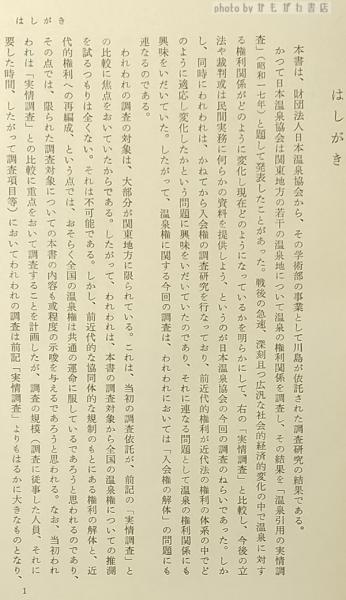 photo by かもがわ書店
はしがき
はしがき
本書は、財団法人日本温泉協会から、その学術部の事業として川島が依託された調査研究の結果である。
かつて日本温泉協会は関東地方の若干の温泉地について温泉の権利関係を調査し、その結果を「温泉引用の実情調
査」(昭和一七年)と題して発表したことがあった。戦後の急速、深刻且つ広汎な社会的経済的変化の中で温泉に対す
る権利関係がどのように変化し現在どのようになっているかを明らかにして、右の「実情調査」と比較し、今後の立
法や裁判或は民間実務に何らかの資料を提供しよう、というのが日本温泉協会の今回の調査のねらいであった。しか
し、同時にわれわれは、かねてから入会権の調査研究を行なっており、前近代的権利が近代法の権利の体系の中でど
のように適応し変化したかという問題に興味をいだいていたのであり、それに連なる問題として温泉の権利関係にも
興味をいだいていた。したがって、温泉権に関する今回の調査は、われわれにおいては「入会権の解体」の問題にも
連なるのである。
われわれの調査の対象は、大部分が関東地方に限られている。これは、当初の調査依託が、前記の「実情調査」と
の比較に焦点をおいていたからである。したがって、われわれは、本書の調査対象から全国の温泉権についての推測
を試るつもりは全くない。それは不可能である。しかし、前近代的な協同体的な規制のもとにある権利の解体と、近
代的権利への再編成、という点では、おそらく全国の温泉権は共通の運命に服しているであろうと思われるのであり、
その点では、限られた調査対象についての本書の内容も或程度の示唆を与えるであろうと思われる。なお、当初われ
われは「実情調査」との比較に重点をおいて調査することを計画したが、調査の規模(調査に従事した人員、それに
要した時間、したがって調査項目等)においてわれわれの調査は前記「実情調査」よりもはるかに大きなものとなり、
1